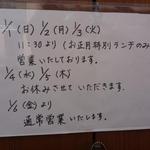 1/1(日) 1/2(月) 1/3(火)
11:30より(お正月特別ランチのみ
営業いたしております。
1/4(水) 1/5(木)
お休みさせていただきます。
1/6(金)より
通常営業いたします。